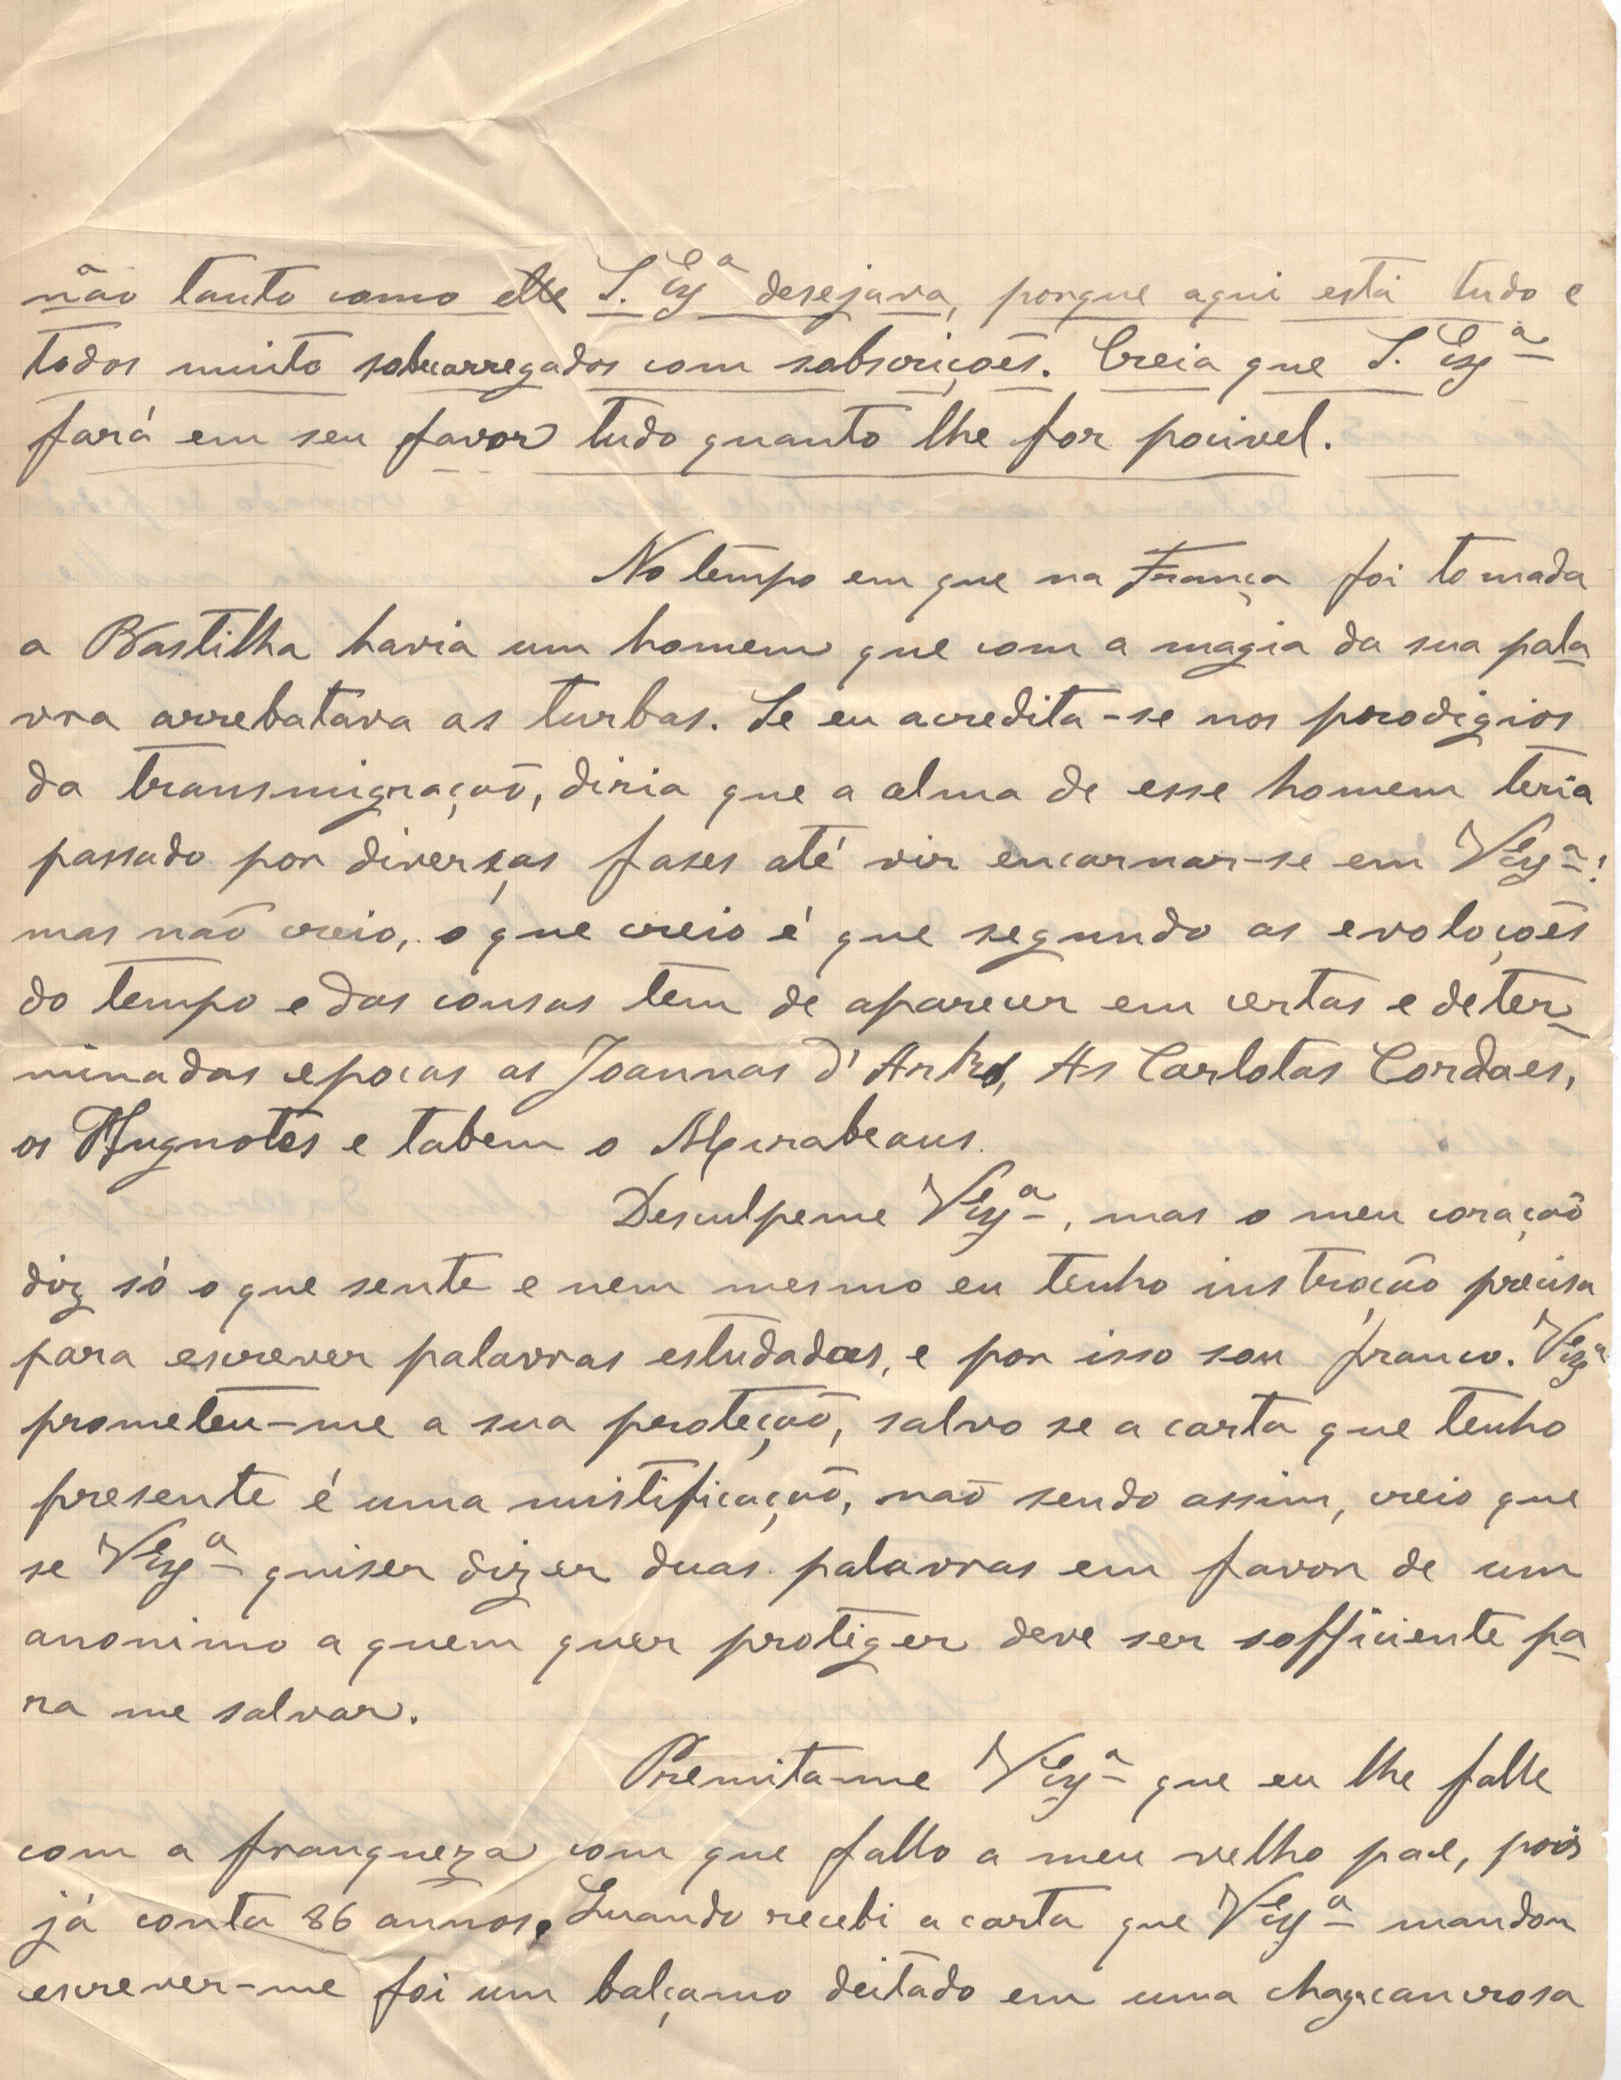 não tanto como elle S. Exª desejava, porque aqui está tudo e
todos muito sobcarregados com sobsoriçoẽs. Creia que S. Exª
fará em seu favor tudo quanto lhe for pocivel.
No tempo em que na França foi tomada
a Bastilha havia um homem que com a magia da sua pala
vra arrebatava as turbas. Se eu acredita-se nos prodigios
da transmigraçaõ, diria que a alma de esse homem teria
passado por diversas fases até vir encarnar-se em V Exª!
mas naõ creio, o que creio é que segundo as evoloçoẽs
do tempo e das cousas tem de aparecer em certas e deter
minadas epocas as Joannas d'Ark, As Carlotas Cordaes,
os Hugnotes e tabem o Mirabeaus.
Desculpeme V Exª, mas o meu coraçaõ
diz só o que sente e nem mesmo eu tenho instroção precisa
para escrever palavras estudadas, e por isso sou franco. V Exª
prometeu-me a sua proteçaõ, salvo se a carta que tenho
presente é uma mistificaçaõ, naõ sendo assim, creio que
se V Exª quiser dizer duas palavras em favor de um
anonimo a quem quer protiger deve ser sofficiente pa
ra me salvar.
Premita-me V Exª que eu lhe falle
com a franqueza com que fallo a meu velho pae, pois
já conta 86 annos. Quando recebi a carta que V Exª mandou
escrever-me foi um balçamo deitado em uma chaga cancrosa